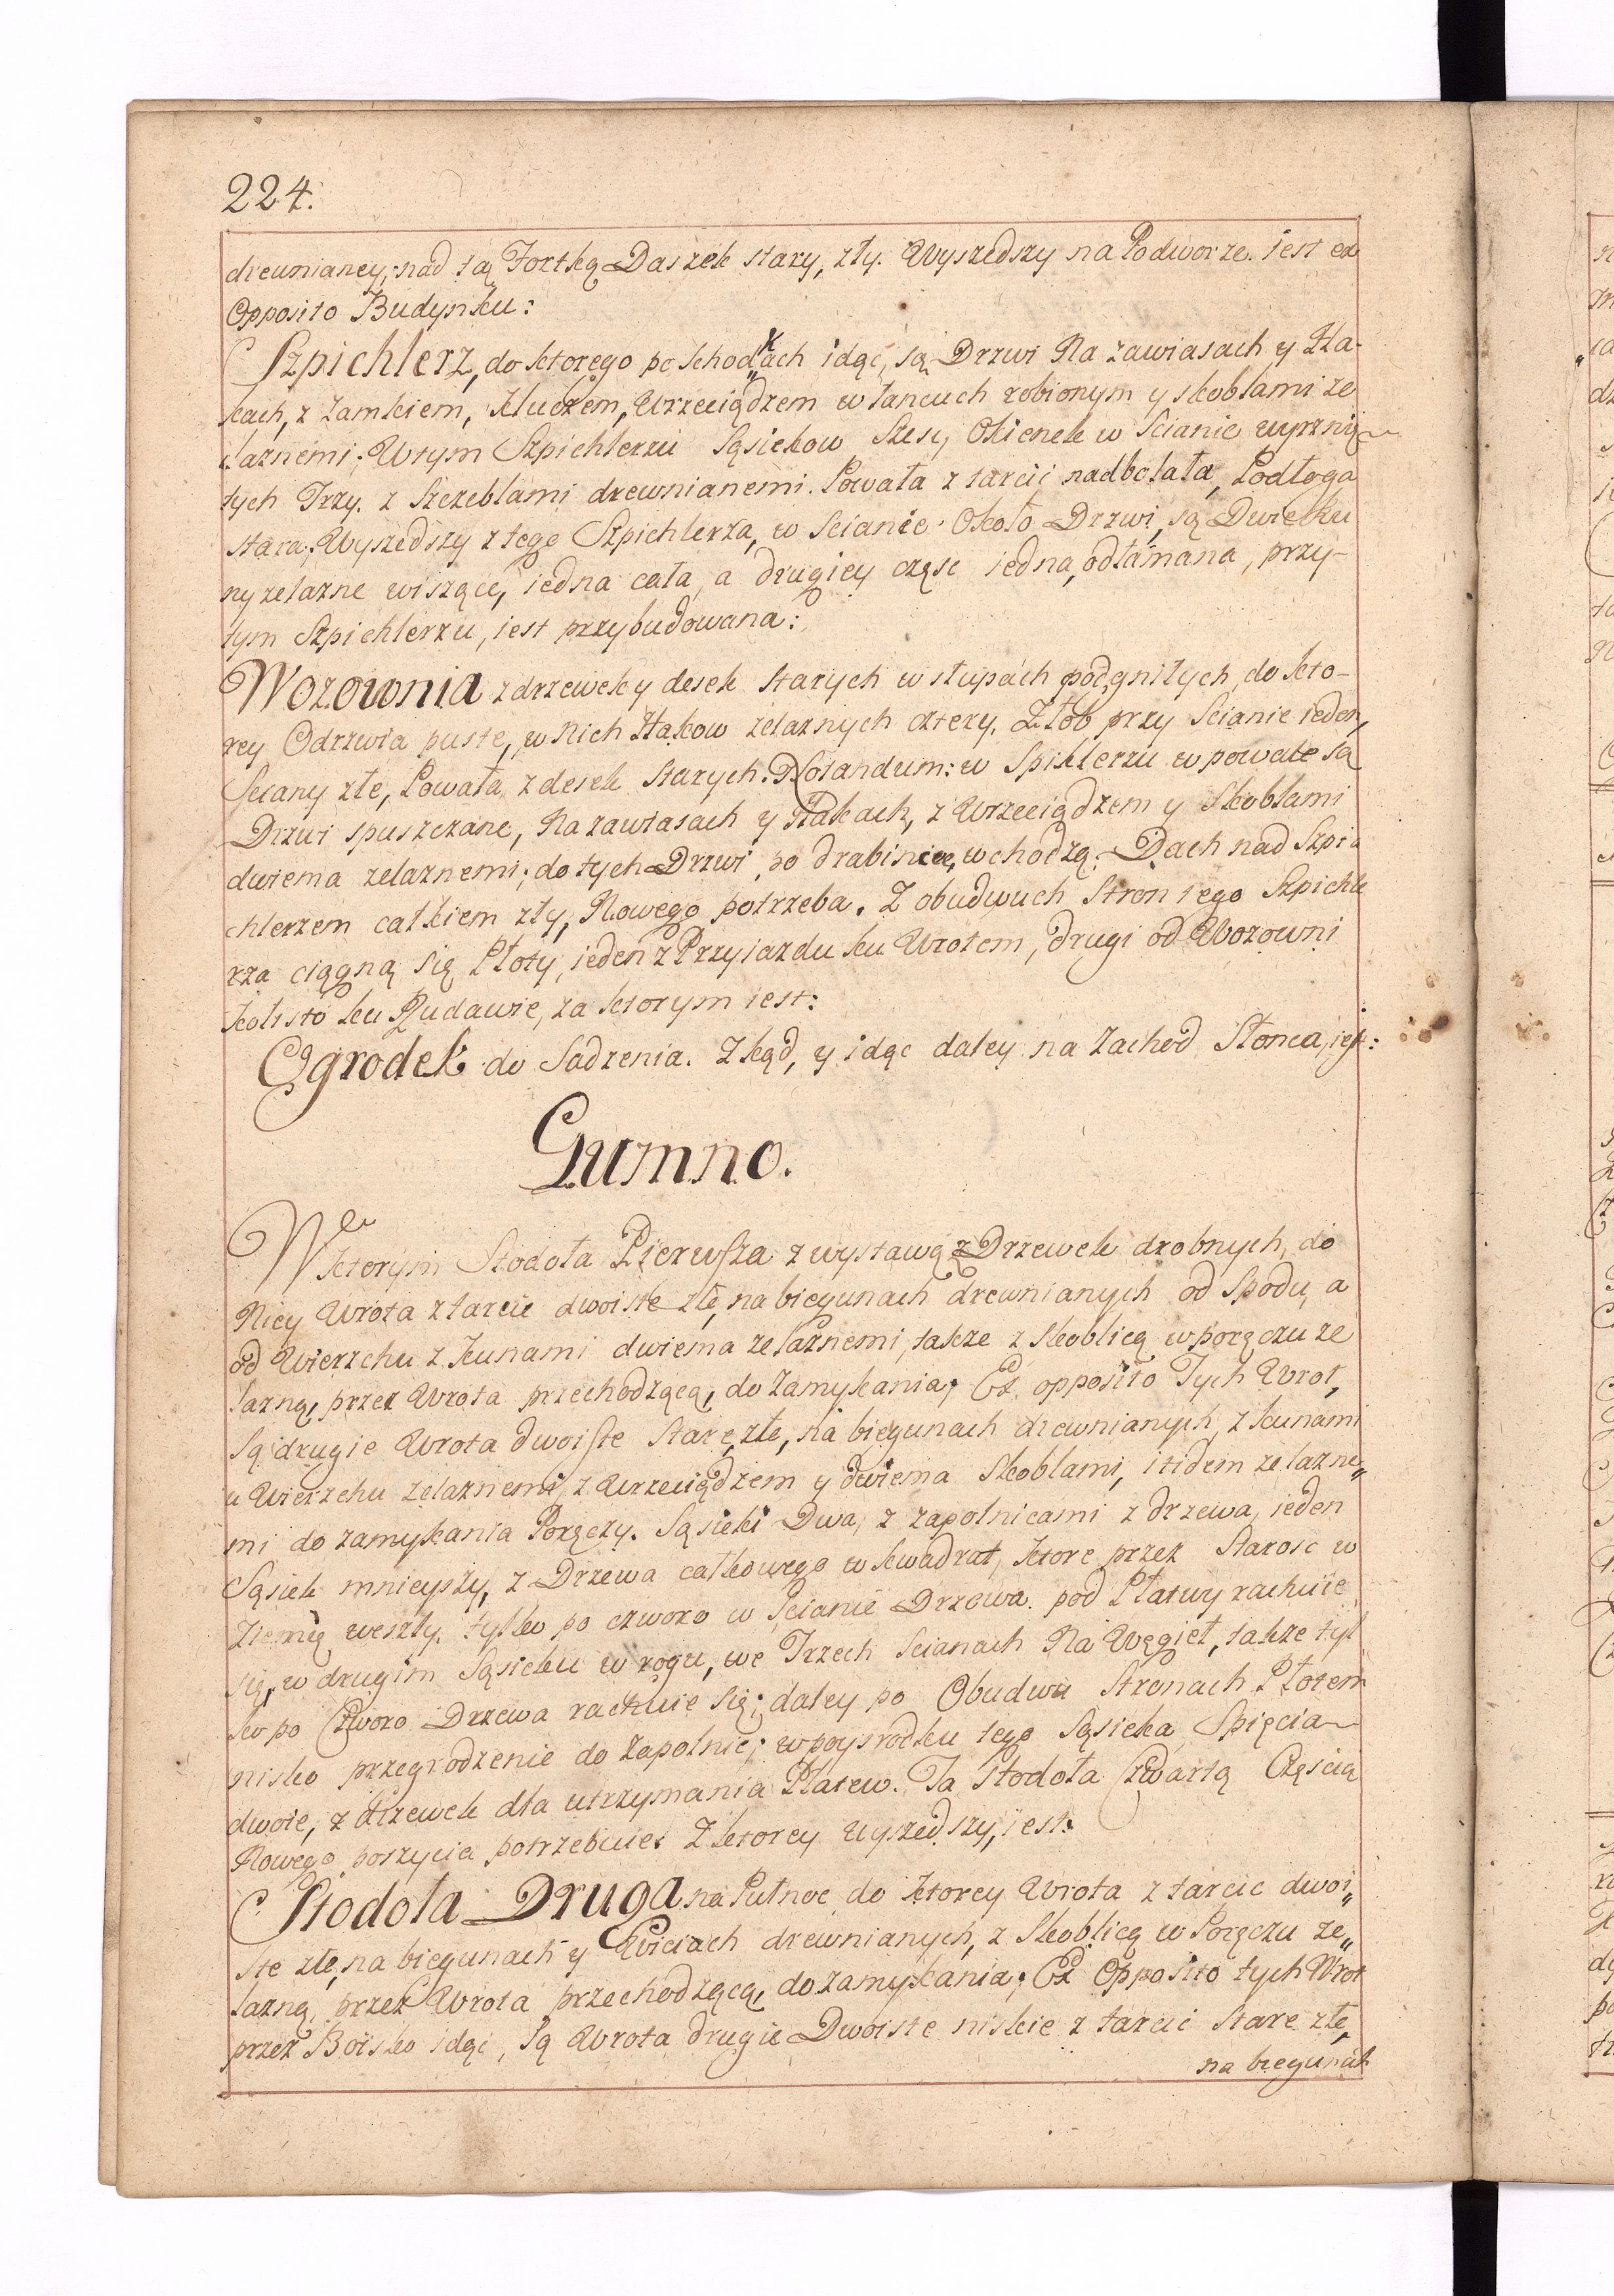 224.
drewnianey, nad tą Fortką Daszek stary, zły. Wyszedszy na Podworze. iest ex
Opposito Budynku:
Szpichlerz, do ktorego po schodkach idąc, są Drzwi Na zawiasach y Ha-
kach, z Zamkiem, Kluczem, Wrzeciądzem w łancuch robionym y skoblami że
laznemi; W tym Szpichlerzu Sąsiekow Szesc, Okienek w Scianie wyrznię
tych Trzy. z Szczeblami drewnianemi. Powała z tarcic nadbolała, Podłoga
stara; Wyszedszy z tego Szpichlerza, w Scianie Około Drzwi, są Dwie Ku
ny zelazne wiszące, iedna cała, a drugiey częsc iedna, odłamana, przy-
tym Szpichlerzu, iest przybudowana:
Wozownia z drzewek y desek Starych w słupach podgniłych, do kto-
rey Odrzwia puste, w Nich Hakow żelaznych cztery. Złob przy Scianie ieden,
Sciany złe, Powała z desek Starych. Notandum: w Spiklerzu w powale są
Drzwi spuszczane, Na zawiasach y Hakach, z Wrzeciądzem y Skoblami
dwiema zelaznemi; do tych Drzwi po drabince, wchodzą. Dach nad Szpi
chlerzem całkiem zły, Nowego potrzeba. Z obudwuch Stron tego Szpichle
rza ciągną się Płoty, ieden z Przyiazdu ku Wrotom, drugi od Wozowni
kolisto ku Rudawie, za ktorym iest:
Ogrodek do Sadzenia. Zkąd, y idąc daley na Zachod Słonca, iest:
Gumno.
W ktorym Stodoła Pierwsza z wystawą z Drzewek drobnych, do
Niey Wrota z tarcic dwoiste złe, na biegunach drewnianych od Spodu, a
od Wierzchu z Kunami dwiema żelaznemi, także z Skoblicą w poręczu że
lazną, przez Wrota przechodzącą, do Zamykania; Ex opposito Tych Wrot,
Są drugie Wrota dwoiste Stare, złe, na biegunach drewnianych, z kunami
u Wierzchu żelaznemi, z Wrzeciądzem y dwiema Skoblami, itidem żelazne„
mi do zamykania Poręczy. Sąsieki Dwa, z zapolnicami z drzewa, ieden
Sąsiek mnieyszy, z Drzewa całkowego w kwadrat, ktore przez Starosc w
Ziemię weszły, tylko po czworo w scianie Drzewa. pod Płatwy rachuie
się, w drugim Sąsieku w rogu, we Trzech Scianach Na Węgieł, także tyl
ko po Czworo Drzewa rachuie się; daley po Obudwu Stronach Płotem
nisko przegrodzenie do Zapolnic; w posrodku tego Sąsieka Spięcia
dwoie, z drzewek dla utrzymania Płatew. Ta Stodoła Czwartą Częscią
Nowego poszycia potrzebuie. Z ktorey wyszedszy, iest:
Stodoła Druga na Pułnoc, do ktorey Wrota z tarcic dwoi„
ste złe, na biegunach y Gwiciach drewnianych, z Skoblicą w Poręczu że„
lazną, przez Wrota przechodzącą, do zamykania; Ex Opposito tych Wrot
przez Boisko idąc, Są Wrota drugie Dwoiste niskie z tarcic Stare złe,
na biegunach